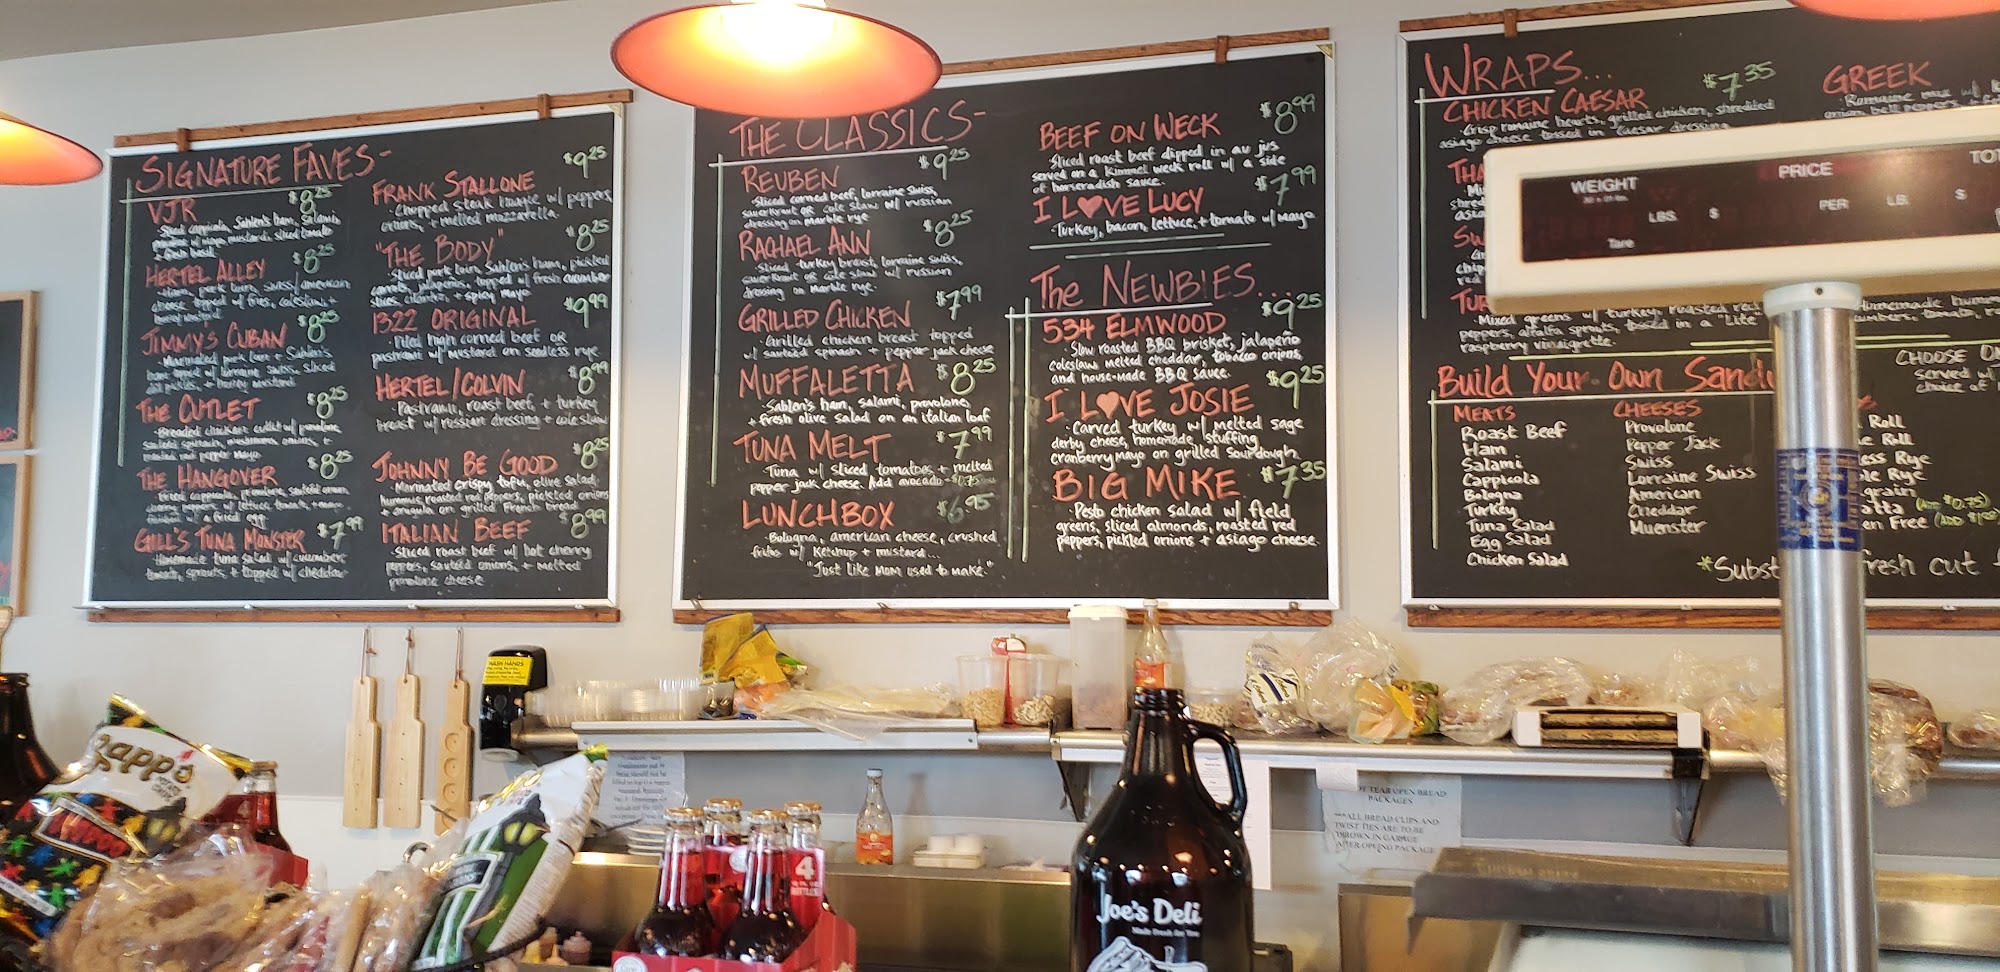 SIGNATURE FAVES-
VJR $8.25
Sliced cappicola, Sahlen's ham, salami,
sliced tomato
+ fresh basil
HERTEL ALLEY $8.25
pork loin, swiss/american
cheese topped w/ fries, coleslaw, +
JIMMY'S CUBAN $8.25
Marinated pork loin + Sahlen's
ham w/ lorraine swiss, sliced
dill pickles, + honey mustard
THE CUTLET $8.25
Breaded chicken cutlet w/ provolone,
sauteed spinach, mushrooms, onions, +
roasted red pepper mayo
THE HANGOVER $8.25
Fried cappicola, provolone, sauteed onion,
cherry peppers w/ lettuce, tomato, + mayo
finished w/ a fried egg
GILL'S TUNA MONSTER $7.99
Homemade tuna salad w/ cucumbers,
tomato, sprouts, + topped w/ cheddar
FRANK STALLONE $9.25
Chopped steak hoagie w/ peppers,
onions, + melted mozzarella
"THE BODY" $8.25
Sliced pork loin, Sahlen's ham, pickled
carrots, jalapeños, topped w/ fresh cucumber
slices, cilantro, + spicy mayo
1322 ORIGINAL $9.99
Piled high corned beef OR
pastrami w/ mustard on seedless rye
HERTEL/COLVIN $8.99
Pastrami, roast beef, + turkey
breast w/ russian dressing + cole slaw
JOHNNY BE GOOD $8.25
Marinated crispy tofu, olive salad,
hummus, roasted red peppers, pickled onions
+ arugula on grilled French bread
ITALIAN BEEF $8.99
Sliced roast beef w/ hot cherry
peppers, sautéd onions, + melted
provolone cheese
THE CLASSICS-
REUBEN $9.25
Sliced corned beef, lorraine swiss,
sauerkraut OR cole slaw w/ russian
dressing on marble rye
RACHAEL ANN $8.25
Sliced turkey breast, lorraine swiss,
sauerkraut OR cole slaw w/ russian
dressing on marble rye.
GRILLED CHICKEN $7.99
Grilled chicken breast topped
w/ sautéd spinach + pepper jack cheese
MUFFALETTA $8.25
Sahlen's ham, salami, provolone,
+ fresh olive salad on an italian loaf
TUNA MELT $7.99
Tuna w/ sliced tomatoes + melted
pepper jack cheese. Add avocado -$0.75
LUNCHBOX $6.95
Bologna, american cheese, crushed
fritos w/ ketchup + mustard...
"Just like MOM used to make."
BEEF ON WECK $8.99
Sliced roast beef dipped in au jus
served on a Kimmel weck roll w/ a side
of horseradish sauce.
I L♥VE LUCY $7.99
Turkey, bacon, lettuce, + tomato w/ Mayo
The NEWBIES...
534 ELMWOOD $9.25
Slow roasted BBQ brisket, jalapeño
coleslaw, melted cheddar, tobacco onions,
and house-made BBQ sauce.
I L♥VE JOSIE $9.25
Carved turkey w/ melted sage
derby cheese, homemade stuffing,
cranberry mayo on grilled sourdough
BIG MIKE $7.35
Pesto chicken salad w/ field
greens, sliced almonds, roasted red
peppers, pickled onions + asiago cheese.
WRAPS... $7.35
CHICKEN CAESAR
Crisp romaine hearts, grilled chicken, shredded
asiago cheese tossed in caesar dressing
GREEK
Romaine mix w/
onion, bell peppers, +
Mixed greens w/ turkey, roasted red
peppers, alfalfa sprouts, tossed in a "Lite"
raspberry vinaigrette.
Homemade
Build Your Own
MEATS
Roast Beef
Ham
Salami
Cappicola
Bologna
Turkey
Tuna Salad
Egg Salad
Chicken Salad
CHEESES
Provolone
Pepper Jack
Swiss
Lorraine Swiss
American
Cheddar
Muenster
CHOOSE
served w/
choice of
Roll
Roll
Rye
Rye
(ADD $0.75)
Free
fresh cut
WEIGHT
LBS.
Tare
PRICE
$ PER LB. $
WASH HANDS
Zapp's
4
TEAR OPEN BREAD
PACKAGES
ALL BREAD CLIPS AND
TWIST TIES ARE TO BE
THROWN IN GARBAGE
AFTER OPENING PACKAGE
Joe's Deli
Made Fresh for You